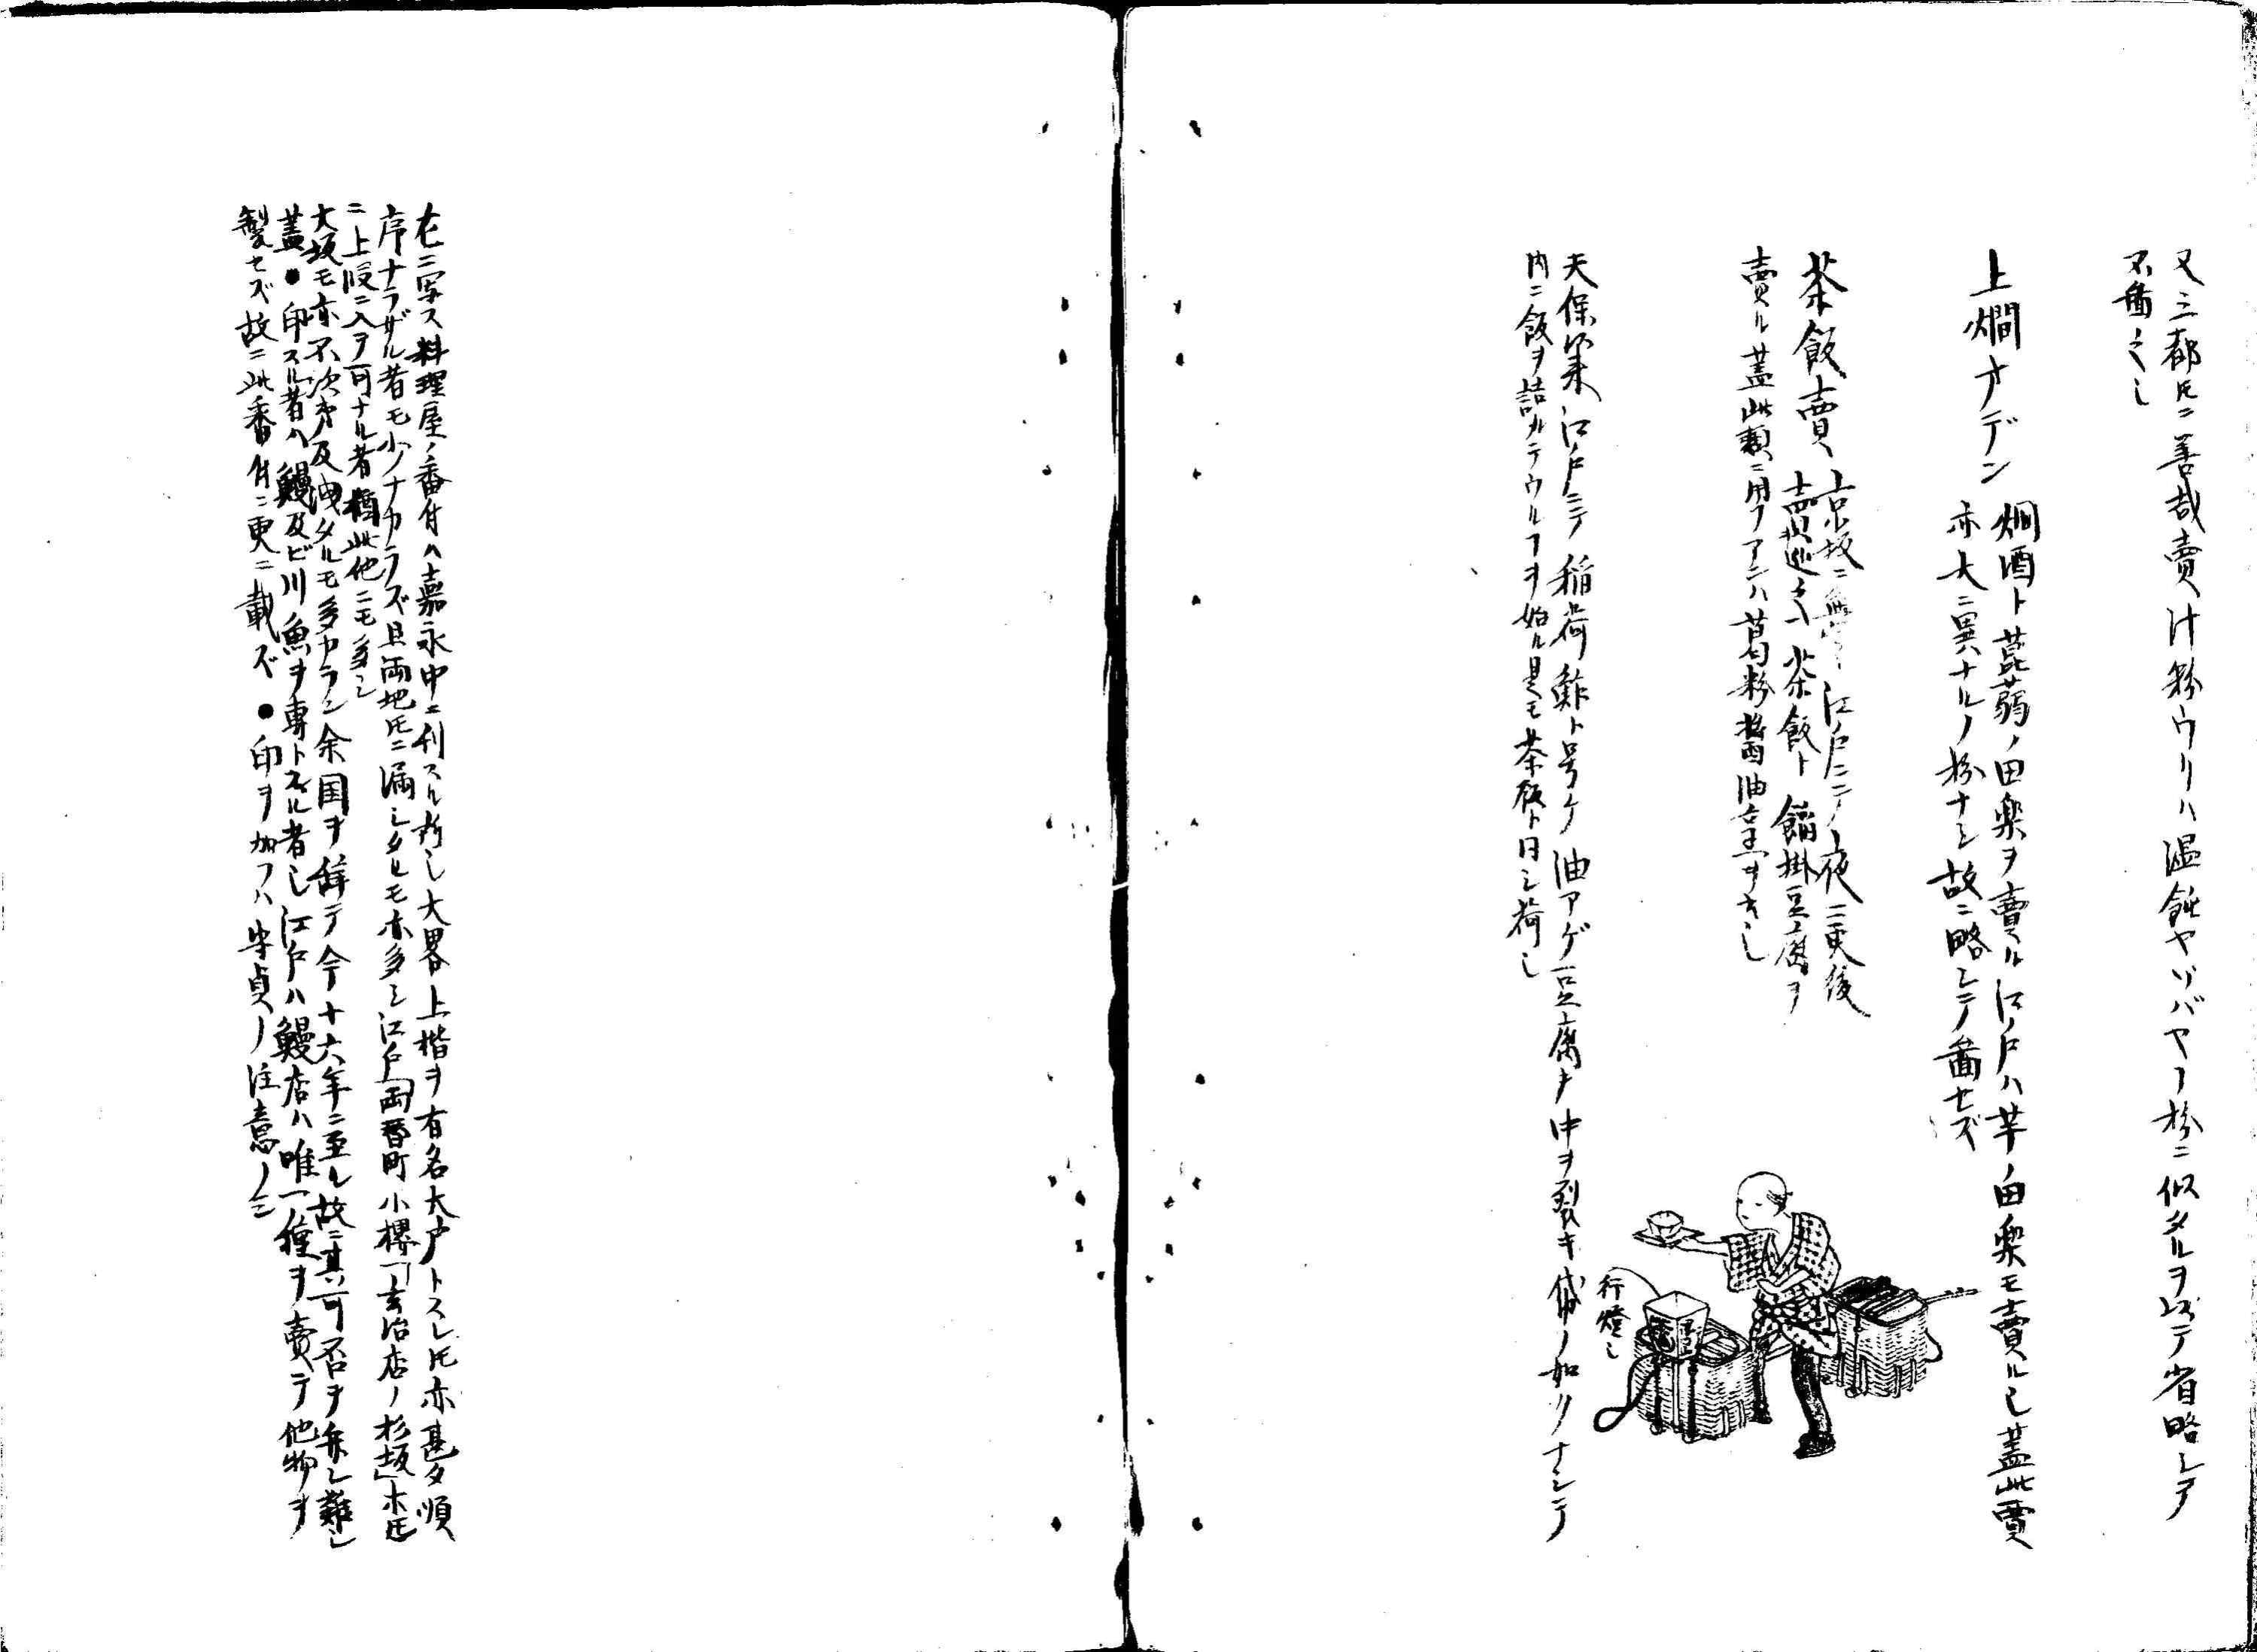 又三都トモニ善哉賣汁粉ウリハ温飩ヤソバヤノ扮ニ似タルヲ以テ省略シテ
不畵之也
上燗オデン
燗酒ト蒟蒻ノ田楽ヲ賣ル江戸ハ芋ノ田楽モ賣ル也蓋此賈
亦大ニ異ナルノ扮ナシ故ニ略シテ畵セズ
茶飯賣
京坂ニ無之江戸ニテ夜二更後
賣巡ル茶飯ト餡掛豆腐ヲ
賣ル蓋此類ニ用フアンハ葛粉醤油烹ヲ云也
天保末年江戸ニテ稲荷鮓ト号ケ油アゲ豆腐ノ中ヲ裂キ袋ノ如クナシテ
内ニ飯ヲ詰メテウルヿヲ始ル是モ茶飯ト同シ荷也
行燈也
左ニ写ス料理屋ノ番付ハ嘉永中ニ刊スル所也大畧上楷ヲ有名大戸トスレ𪜈亦甚タ順
序ナラザル者モ少ナカラズ且両地𪜈ニ漏レタルモ亦多シ江戸両替町小櫻「玄治店ノ杉坂」ホ𪜈
ニ上段ニ入ヲ可ナル者猶此他ニモ多シ
大坂モ亦不次第及洩タルモ多カラン余国ヲ辞テ今十六年ニ至ル故ニ其可否ヲ弁シ難シ
蓋●印スル者ハ鰻及ビ川魚ヲ専トスル者也江戸ハ鰻店ハ唯一種ヲ賣テ他物ヲ
製セズ故ニ此番付ニ更ニ載ズ●印ヲ加フハ守貞ノ注意ノミ